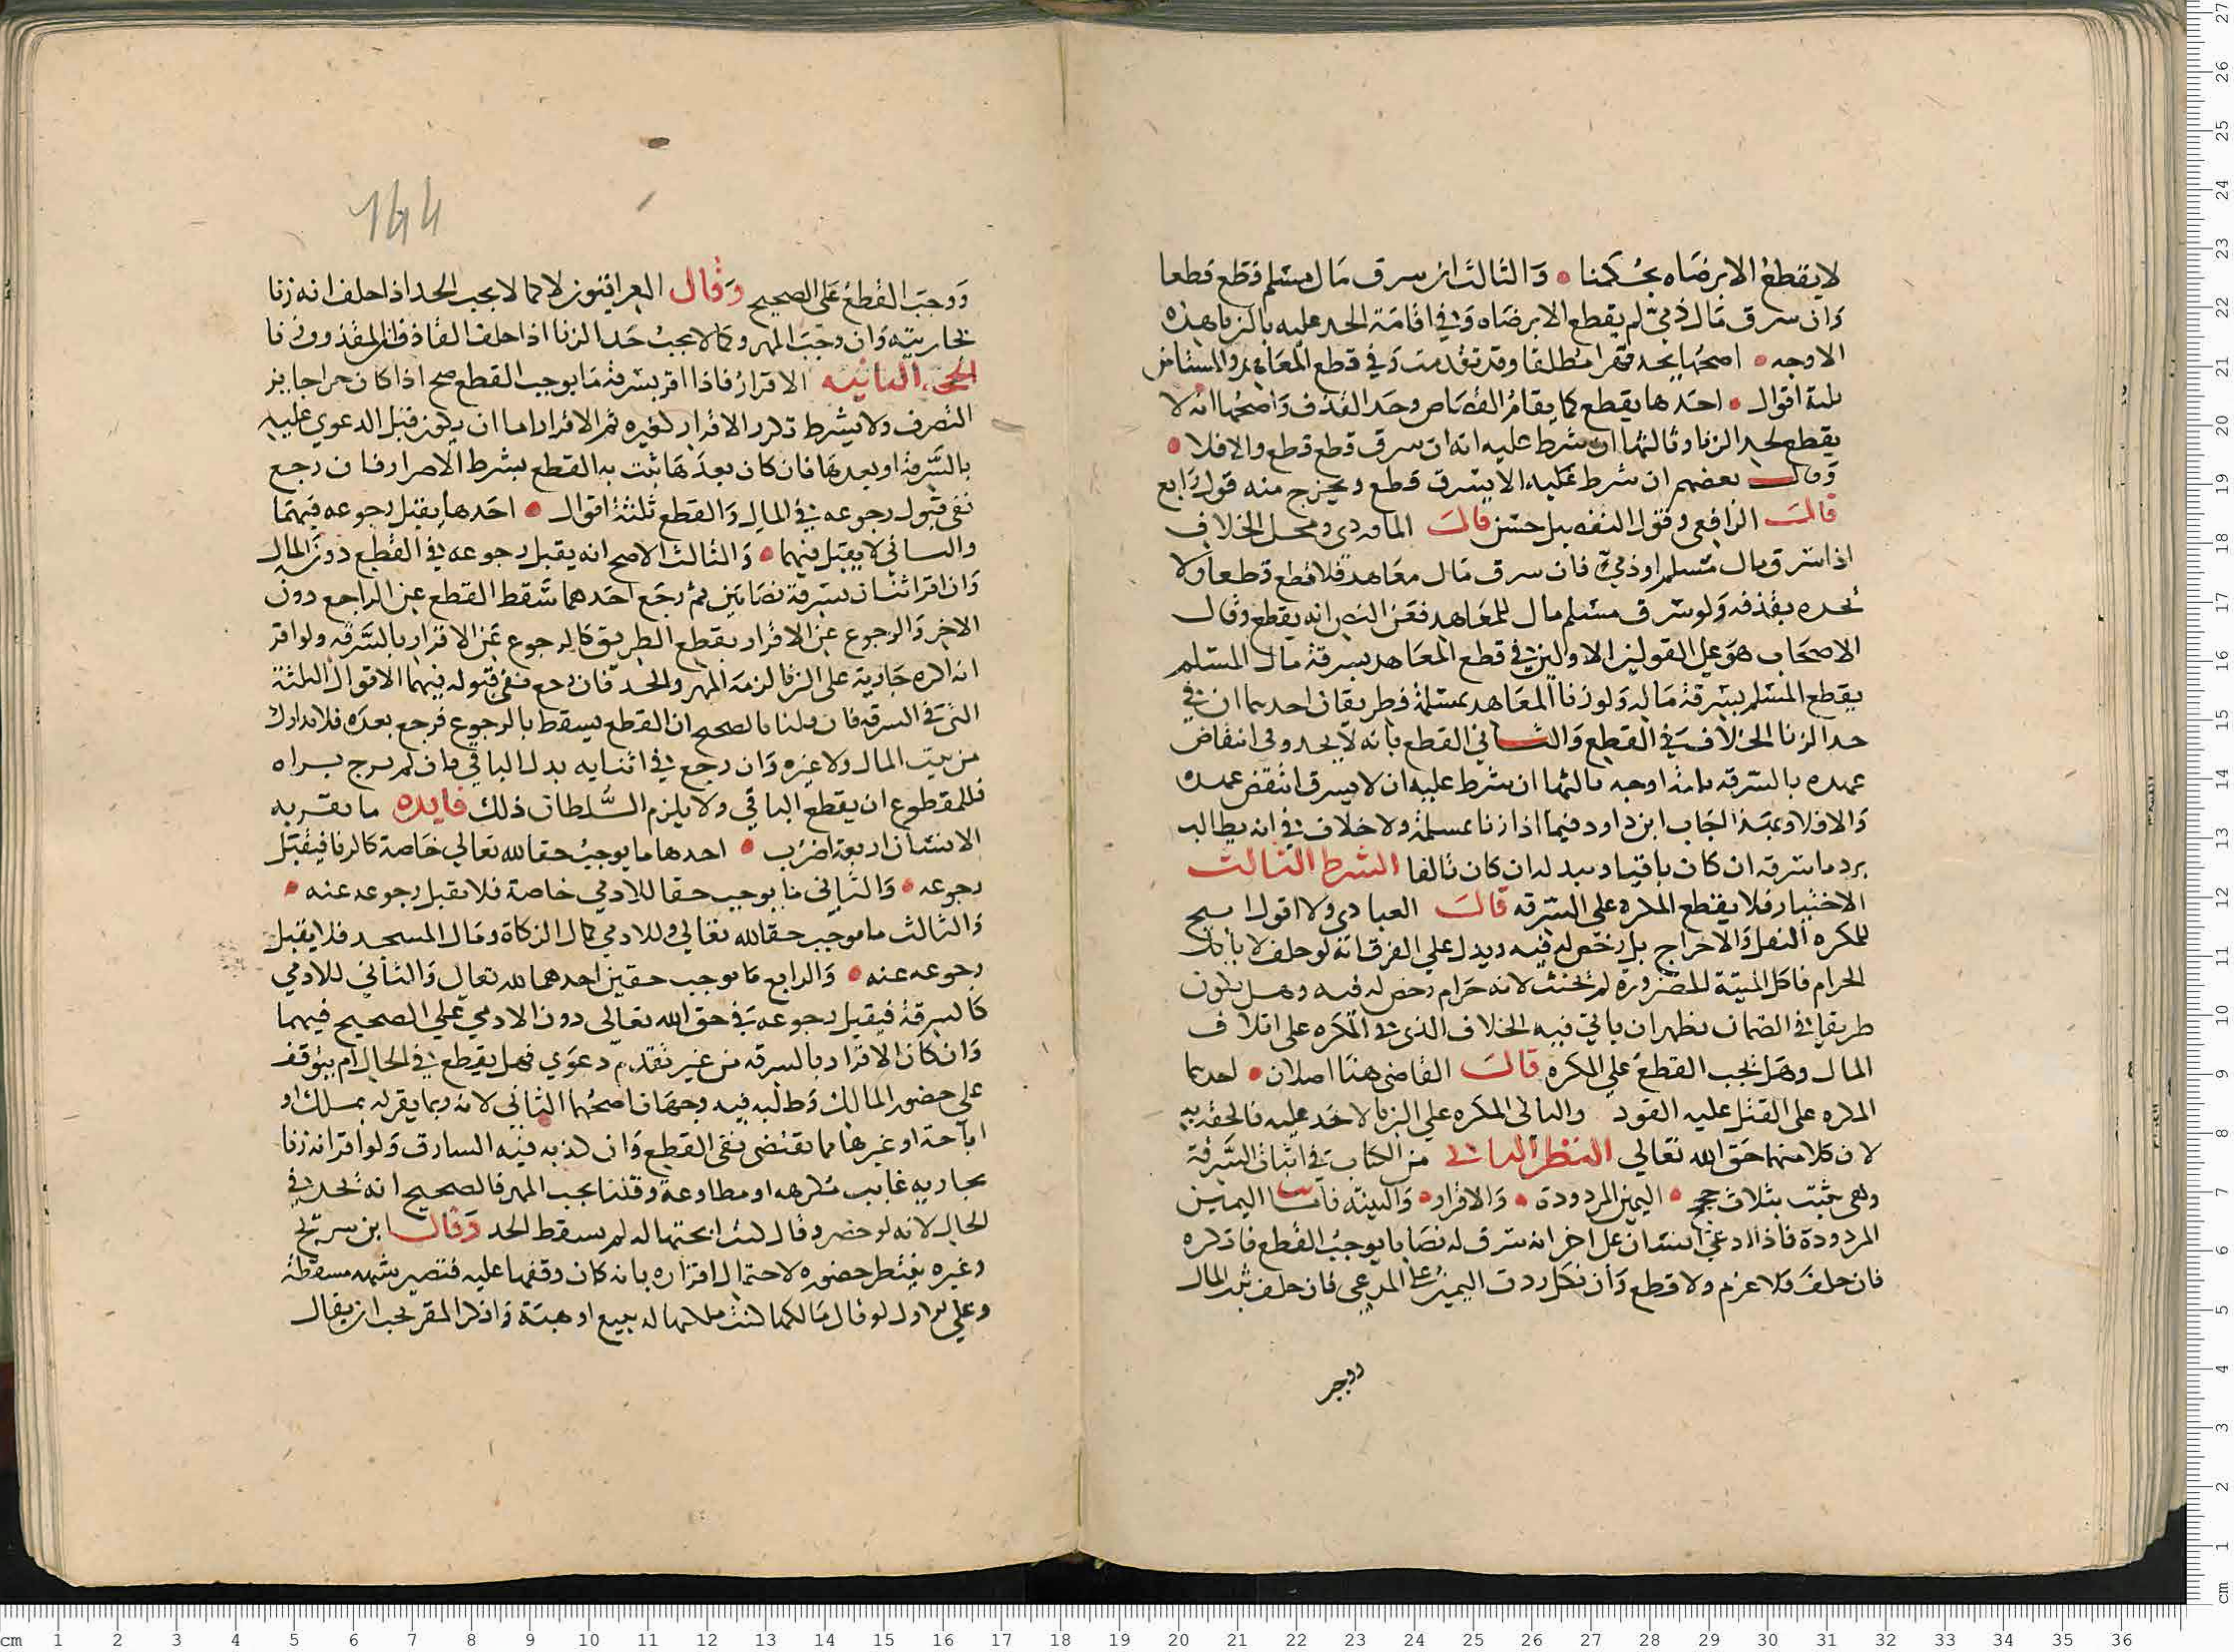 لا يقطع الا برضاه بحكمنا • والثالث ان سرق مال مسلم قطع قطعا
وان سرق مال ذمي لم يقطع الا برضاه وفي اقامة الحد عليه بالزنا هذه
الاوجه • اصحها يحد قهرا مطلقا وقد تقدمت وفي قطع المعاهد والمستامن
ثلثة اقوال • احدها يقطع كما يقام القصاص وحد القذف واصحها انه لا
يقطع لحد الزنا وثالثها ان شرط عليه انه ان سرق قطع قطع والا فلا •
وقال بعضهم ان شرط عليه الا يسرق قطع ويخرج منه قول رابع
قال الرافعي وقول التفصيل حسن قال الماوردي ومحل الخلاف
اذا سرق مال مسلم او ذمي فان سرق مال معاهد فلا قطع قطعا ولا
نحده بقذفه ولو سرق مسلم مال المعاهد فعن النص انه يقطع وقال
الاصحاب هو على القولين الاولين في قطع المعاهد بسرقة مال المسلم
يقطع المسلم بسرقة ماله ولو زنا المعاهد بمسلمة فطريقان احدهما ان في
حد الزنا الخلاف في القطع والثاني القطع بانه لا يحد وفي انتقاض
عهده بالسرقة ثلثة اوجه ثالثها ان شرط عليه ان لا يسرق انتقض عهده
والا فلا وبمثله اجاب ابن داود فيما اذا زنا بمسلمة ولا خلاف في انه يطالب
برد ما سرقه ان كان باقيا وببدله ان كان تالفا الشرط الثالث
الاختيار فلا يقطع المكره على السرقة قال العبادي ولا اقول ابيح
للمكره النقل والاخراج بل رخص له فيه ويدل على الفرق انه لو حلف لا ياكل
الحرام فاكل الميتة للضرورة لم يحنث لانه حرام رخص له فيه وهل يكون
طريقا في الضمان يظهر ان ياتي فيه الخلاف الذي في المكره على اتلاف
المال وهل يجب القطع على المكره قال القاضي هنا اصلان • احدهما
المكره على القتل عليه القود والثاني المكره على الزنا لا حد عليه فالحقه به
لان كلا منهما حق الله تعالى النظر الثاني من الكتاب في اثبات السرقة
وهي تثبت بثلاث حجج • اليمين المردودة • والاقرار • والبينة فاما اليمين
المردودة فاذا ادعى انسان على اخر انه سرق له نصابا يوجب القطع فانكره
فان حلف فلا غرم ولا قطع وان نكل ردت اليمين على المدعي فان حلف ثبت المال
ووجب
144
ووجب القطع على الصحيح وقال العراقيون لا كما لا يجب الحد اذا حلف انه زنا
بجاريته وان وجب المهر وكما لا يجب حد الزنا اذا حلف القاذف ان المقذوف زنا
الحجة الثانية الاقرار فاذا اقر بسرقة ما يوجب القطع صح اذا كان حرا جايز
التصرف ولا يشرط تكرر الاقرار كغيره ثم الاقرار اما ان يكون قبل الدعوي عليه
بالسرقة او بعدها فان كان بعدها ثبت به القطع بشرط الاصرار فان رجع
ففي قبول رجوعه في المال والقطع ثلثة اقوال • احدها يقبل رجوعه فيهما
والثاني لا يقبل فيهما • والثالث الاصح انه يقبل رجوعه في القطع دون المال
وان اقر اثنان بسرقة نصابين ثم رجع احدهما سقط القطع عن الراجع دون
الاخر والرجوع عن الاقرار بقطع الطريق كالرجوع عن الاقرار بالسرقة ولو اقر
انه اكره جارية على الزنا لزمه المهر والحد فان رجع ففي قبوله فيهما الاقوال الثلثة
التي في السرقة فان قلنا بالصحيح ان القطع يسقط بالرجوع فرجع بعده فلا تدارك
من بيت المال ولا غيره وان رجع في اثنايه بدل الباقي فان لم يرج براه
فللمقطوع ان يقطع الباقي ولا يلزم السلطان ذلك فايده ما يقر به
الانسان اربعة اضرب • احدها ما يوجب حقا لله تعالى خاصة كالزنا فيقبل
رجوعه • والثاني ما يوجب حقا للادمي خاصة فلا يقبل رجوعه عنه •
والثالث ما يوجب حقا لله تعالى وللادمي كمال الزكاة ومال المسجد فلا يقبل
رجوعه عنه • والرابع ما يوجب حقين احدهما لله تعالى والثاني للادمي
كالسرقة فيقبل رجوعه في حق الله تعالى دون الادمي على الصحيح فيهما
وان كان الاقرار بالسرقة من غير تقدم دعوي فهل يقطع في الحال ام يتوقف
على حضور المالك وطلبه فيه وجهان اصحهما الثاني لانه ربما يقر له بملك او
اباحة او غيرها مما يقتضي نفي القطع وان كذبه فيه السارق ولو اقر انه زنا
بجارية غايب مكرهه او مطاوعة وقلنا يجب المهر فالصحيح انه يحد في
الحال لانه لو حضر وقال كنت ابحتها له لم يسقط الحد وقال ابن سريج
وغيره ينتظر حضوره لاحتمال اقراره بانه كان وقفها عليه فتصير شبهه مسقطة
وعلى الاول لو قال مالكها كنت ملكتها له ببيع او هبة وانكر المقر يجب ان يقال